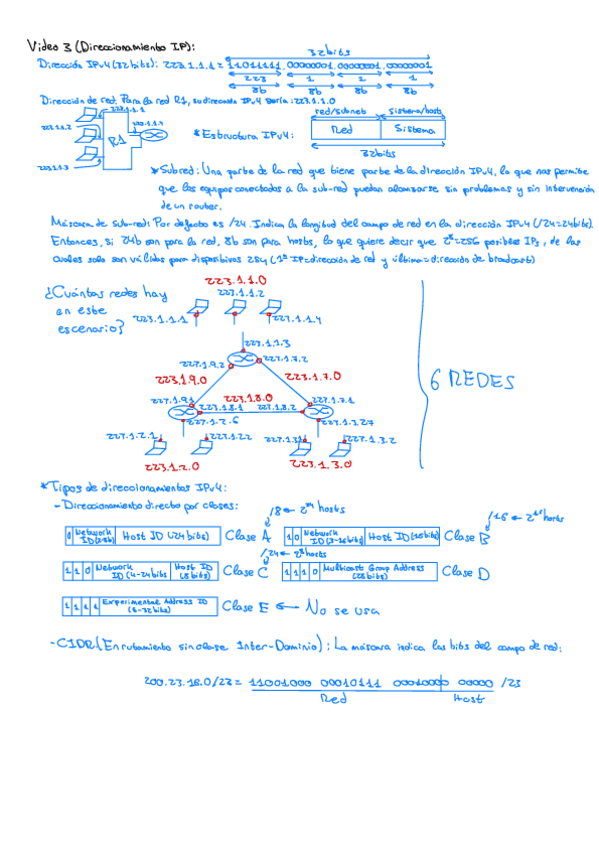 Video 3 (Direccionamiento IP):
32bits
Dirección IPv4 (32 bits): 223.1.1.1 = 11011111.00000001.00000001.00000001
223 1 1 1
8b 8b 8b 8b
Dirección de red: Para la red R1, su dirección IPv4 sería: 223.1.1.0
223.1.1.1
223.1.1.2
223.1.1.4
R1
223.1.1.3
*Estructura IPv4:
red/subnet sistema/hosts
Red Sistema
32bits
*Subred: Una parte de la red que tiene parte de la dirección IPv4, lo que nos permite
que los equipos conectados a la sub-red puedan alcanzarse sin problemas y sin intervención
de un router.
Máscara de sub-red: Por defecto es /24. Indica la longitud del campo de red en la dirección IPv4 (/24=24bits).
Entonces, si 24b son para la red, 8b son para hosts, lo que quiere decir que 2⁸=256 posibles IPs, de las
cuales solo son válidas para dispositivos 254 (1ª IP=dirección de red y última=dirección de broadcast)
¿Cuántas redes hay
en este
escenario?
223.1.1.0
223.1.1.2
223.1.1.1
223.1.1.4
223.1.1.3
223.1.9.2
223.1.7.2
223.1.9.0
223.1.7.0
6 REDES
223.1.8.0
223.1.9.1
223.1.8.1
223.1.8.2
223.1.7.1
223.1.2.6
223.1.3.27
223.1.2.1
223.1.2.2
223.1.3.1
223.1.3.2
223.1.2.0
223.1.3.0
*Tipos de direccionamientos IPv4:
-Direccionamiento directo por clases:
/8 ← 2²⁴ hosts
/16 ← 2¹⁶ hosts
0 Network ID (1-8b) Host ID (24 bits) Clase A
1 0 Network ID (2-16bits) Host ID (16bits) Clase B
/24 ← 2⁸ hosts
1 1 0 Network ID (4-24bits Host ID (8 bits) Clase C
1 1 1 0 Multicast Group Address (28 bits) Clase D
1 1 1 1 Experimental Address ID (4-32 bits) Clase E ← No se usa
-CIDR (Enrutamiento sin clase Inter-Dominio): La máscara indica los bits del campo de red:
200.23.16.0/23 = 11001000 00010111 00010000 00000 /23
Red Host